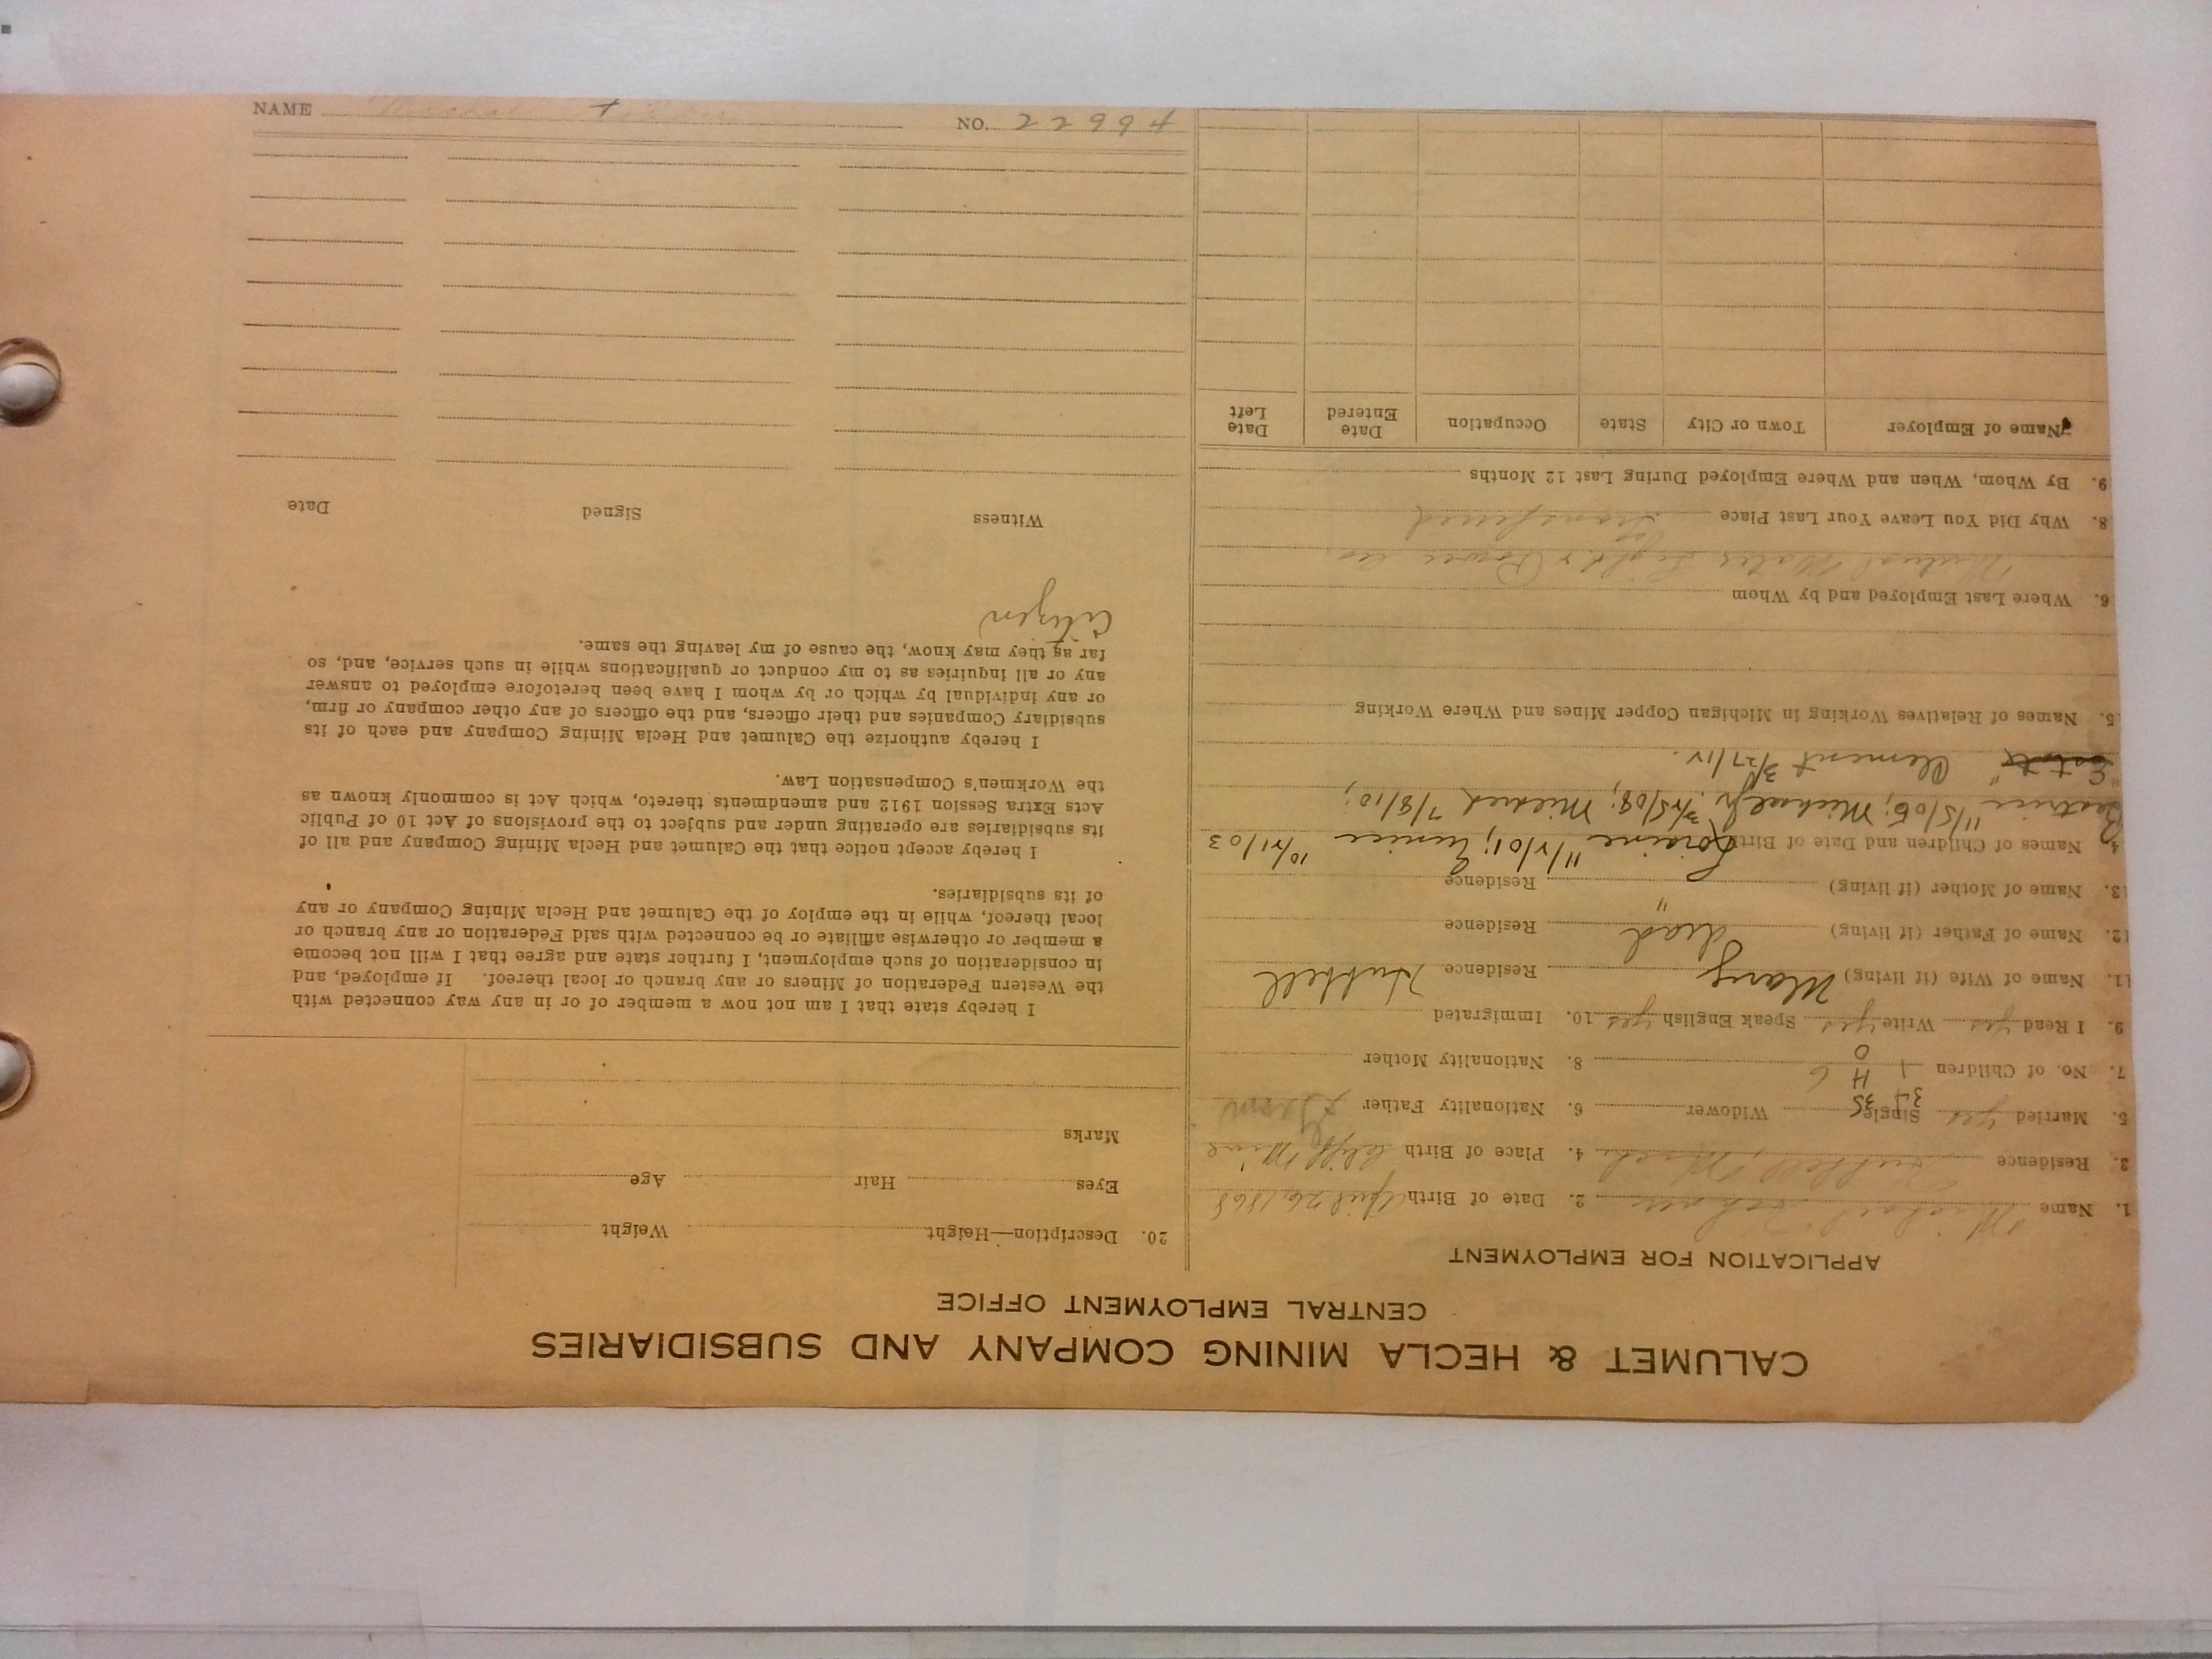 CALUMET & HECLA MINING COMPANY AND SUBSIDIARIES
CENTRAL EMPLOYMENT OFFICE
APPLICATION FOR EMPLOYMENT
1. Name Michael 2. Date of Birth April 26, 1868
3. Residence Hubbell, Mich. 4. Place of Birth Cliff Mine
5. Married yes Single Widower 6. Nationality Father
34
35
7. No. of Children 6 8. Nationality Mother
H
O
9. I Read yes Write yes Speak English yes 10. Immigrated
11. Name of Wife (if living) Mary Residence Hubbell
12. Name of Father (if living) dead Residence
13. Name of Mother (if living) " Residence
4. Names of Children and Date of Birth Loraine 11/2/01; Eunice 10/21/03
Beatrice 11/5/05; Michael Jr. 3/25/08; Mildred 7/8/10;
Clement 3/27/12.
5. Names of Relatives Working in Michigan Copper Mines and Where Working
6. Where Last Employed and by Whom
Mutual Water Light & Power Co.
8. Why Did You Leave Your Last Place Transferred
9. By Whom, When and Where Employed During Last 12 Months
Name of Employer Town or City State Occupation Date Entered Date Left
20. Description—Height Weight
Eyes Hair Age
Marks
I hereby state that I am not now a member of or in any way connected with
the Western Federation of Miners or any branch or local thereof. If employed, and
in consideration of such employment, I further state and agree that I will not become
a member or otherwise affiliate or be connected with said Federation or any branch or
local thereof, while in the employ of the Calumet and Hecla Mining Company or any
of its subsidiaries.
I hereby accept notice that the Calumet and Hecla Mining Company and all of
its subsidiaries are operating under and subject to the provisions of Act 10 of Public
Acts Extra Session 1912 and amendments thereto, which Act is commonly known as
the Workmen's Compensation Law.
I hereby authorize the Calumet and Hecla Mining Company and each of its
subsidiary Companies and their officers, and the officers of any other company or firm,
or any individual by which or by whom I have been heretofore employed to answer
any or all inquiries as to my conduct or qualifications while in such service, and, so
far as they may know, the cause of my leaving the same.
Citizen
Witness Signed Date
NAME Michael NO. 22994